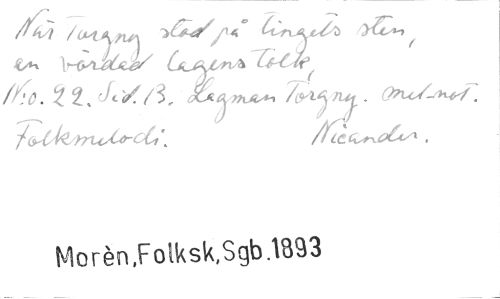 När Torgny stod på tingets sten,
en vördad lagens tolk,
N:o. 22. Sid. 13. Lagman Torgny. mel-not.
Folkmelodi. Nicander.
Morèn,Folksk,Sgb.1893